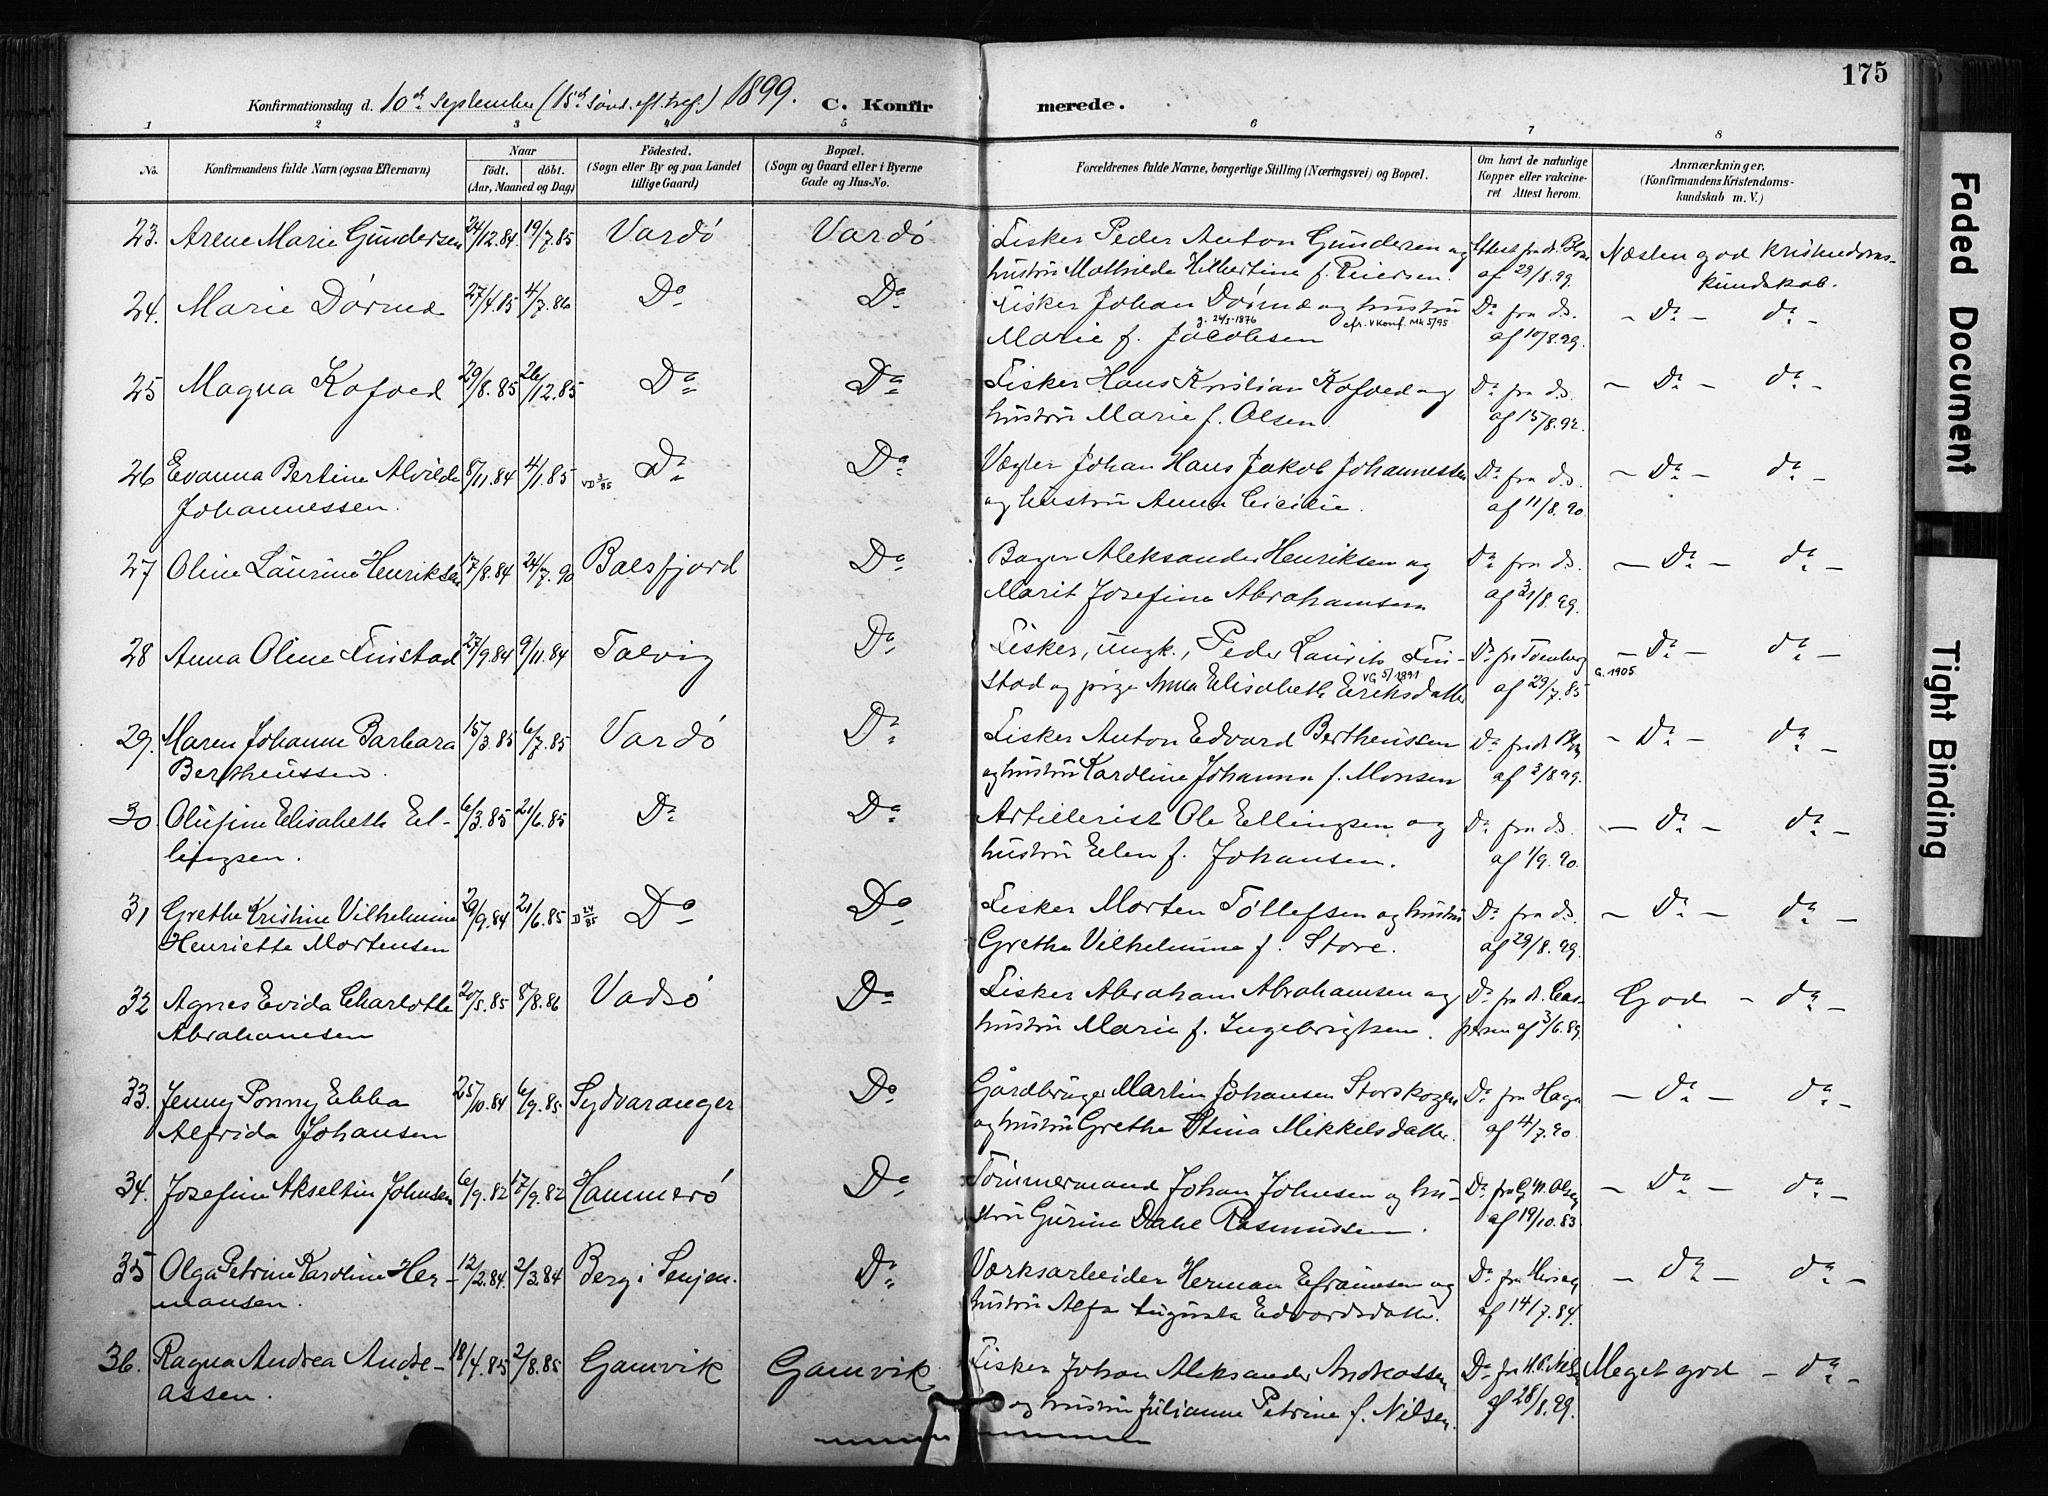 175
Konfirmationsdag d. 10de September (15de Sønd. eft. tref.) 1899. C. Konfirmerede.
1 2 3 4 5 6 7 8
No. Konfirmandens fulde Navn (ogsaa Efternavn) Naar født. døbt. (Aar, Maaned og Dag) Fødested. (Sogn eller By og paa Landet tillige Gaard) Bopæl. (Sogn og Gaard eller i Byerne Gade og Hus-No. Forældrenes fulde Navne, borgerlige Stilling (Næringsvei) og Bopæl. Om havt de naturlige Kopper eller vakcineret Attest herom. Anmærkninger. (Konfirmandens Kristendomskundskab m. V.)
23. Arene Marie Gundersen 24/12.84. 19/7.85 Vardö Vardö Fisker Peder Anton Gundersen og Attest fra dr. Næsten god Kristendoms-
hustru Mathilde Hilbertine f. Reiersen. af 29/8.99. kundskab.
24. Marie Dørmæ 27/4.85 4/7.86 Do Do Fisker Johan Dørmæ og hustru Do fra ds. – Do – do –
g. 24/5-1876 cfr. V Konf. Mk 5/95
Marie f. Jacobsen af 10/8.99.
25 Magna Kofoed 29/8.85 26/12.85 Do Do Fisker Hans Kristian Kofoed og Do fra ds. – Do – do –
hustru Marie f. Olsen. af 15/8.92.
26 Evanna Bertine Alvilde 8/11.84 4/1.85 VD 3/85 Do Do Vægter Johan Hans Jakob Johannessen Do fra ds. – Do – do –
Johannessen. og hustru Anna Cicilie. af 11/8.90.
27 Oline Laurine Henriksen 17/8.84 24/7.90 Balsfjord Do Bager Aleksander Henriksen og Do fra ds. – Do – do –
Marit Josefine Abrahamsen af 31/8.99.
28 Anna Oline Finstad 27/9.84 9/11.84 Talvig Do Fisker, ungk., Peder Laurits Fin- Do fra – Do – do –
VG 5/1891 G. 1905
stad og pige Anna Elisabeth Eriksdatter af 29/7.85
29. Maren Johanne Barbara 15/3.85 6/7.85 Vardö Do Fisker Anton Edvard Bertheussen Do fra dr. – Do – do –
Bertheussen. og hustru Karoline Johanna f. Monsen af 3/8 99.
30. Olufine Elisabeth El- 6/3.85 21/6.85 Do Do Artillerist Ole Ellingsen og Do fra ds. – Do – do –
lingsen. hustru Elen f. Johansen. af 1/9.90.
31 Grethe Kristine Vilhelmine 29/9.84 21/6.85 D 24/85 Do Do Fisker Morten Tøllefsen og hustru Do fra ds. – Do – do –
Henriette Mortensen Grethe Vilhelmine f. Store. af 29/8.99.
32 Agnes Evida Charlotte 20/5.85 8/8.86 Vadsö Do Fisker Abraham Abrahamsen og Do fra dr. Cas- God – do –
Abrahamsen hustru Marie f. Ingebrigtsen. persen af 3/6.89.
33. Jenny Ponny Ebba 25/10.84 6/9.85 Sydvaranger Do Gårdbruger Martin Johansen Storskogen Do fra Hagen – Do – do –
Alfrida Johansen og hustru Grethe Stina Mikkelsdatter. af 4/7.90.
34. Josefine Akseltin Johnsen 6/9.82 17/9.82 Hammerö Do Tømmermand Johan Johnsen og hu- Do fra G. N. Olsen – Do – do –
stru Gurine Dahl Rasmussen. af 19/10.83.
35 Olga Petrine Karoline Her- 12/2.84. 2/3.84 Berg i Senjen. Do Værksarbeider Herman Efraimsen og Do fra – Do – do –
mansen. hustru Alfa Augusta Edvardsdatter. af 14/7.84.
36. Ragna Andrea Andre- 18/4.85 2/8.85 Gamvik Gamvik Fisker Johan Aleksander Andreassen Do fra Meget god – do –
assen. og hustru Julianne Petrine f. Nilsen. af 28/8.99.
Faded Document
Tight Binding